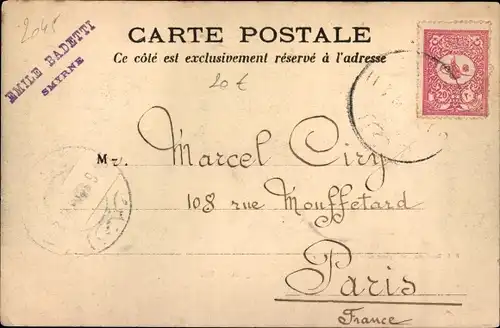 2045
EMILE BADETTI
SMYRNE
CARTE POSTALE
Ce côté est exclusivement réservé à l'adresse
20 €
Mr. Marcel Ciry
108 rue Mouffetard
Paris
France
20